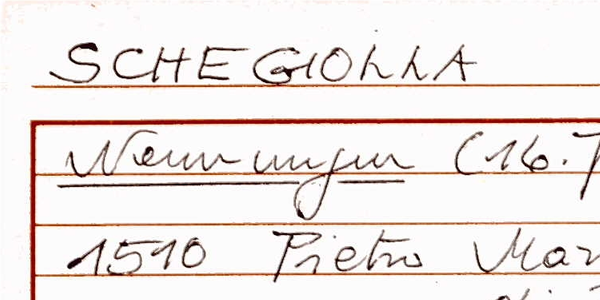 SCHEGIOLLA
Nennungen (16.J
1510 Pietro Mar